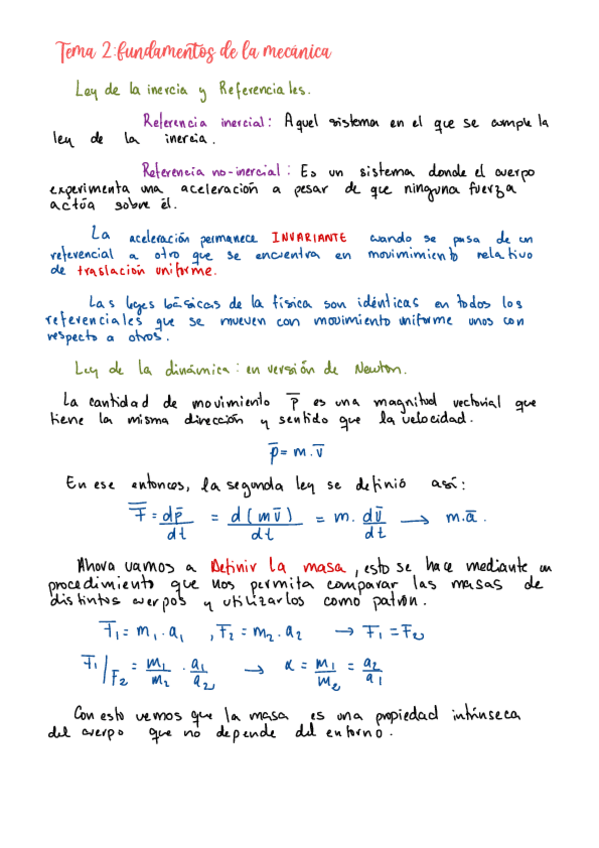 Tema 2: fundamentos de la mecánica
Ley de la inercia y Referenciales.
Referencia inercial: Aquel sistema en el que se cumple la
ley de la inercia.
Referencia no-inercial: Es un sistema donde el cuerpo
experimenta una aceleración a pesar de que ninguna fuerza
actúa sobre él.
La aceleración permanece INVARIANTE cuando se pasa de un
referencial a otro que se encuentra en movimimiento relativo
de traslación uniforme.
Las leyes básicas de la física son idénticas en todos los
referenciales que se mueven con movimiento uniforme unos con
respecto a otros.
Ley de la dinámica: en versión de Newton.
La cantidad de movimiento p̅ es una magnitud vectorial que
tiene la misma dirección y sentido que la velocidad.
p̅ = m . v̅
En ese entonces, la segunda ley se definió así:
F̅ = dp̅/dt = d(mv̅)/dt = m. dv̅/dt → m.a̅.
Ahora vamos a Definir la masa, esto se hace mediante un
procedimiento que nos permita comparar las masas de
distintos cuerpos y utilizarlos como patrón.
F₁ = m₁ . a₁ , F₂ = m₂ . a₂ → F₁ = F₂
F₁/F₂ = m₁/m₂ . a₁/a₂ → α = m₁/m₂ = a₂/a₁
Con esto vemos que la masa es una propiedad intrínseca
del cuerpo que no depende del entorno.